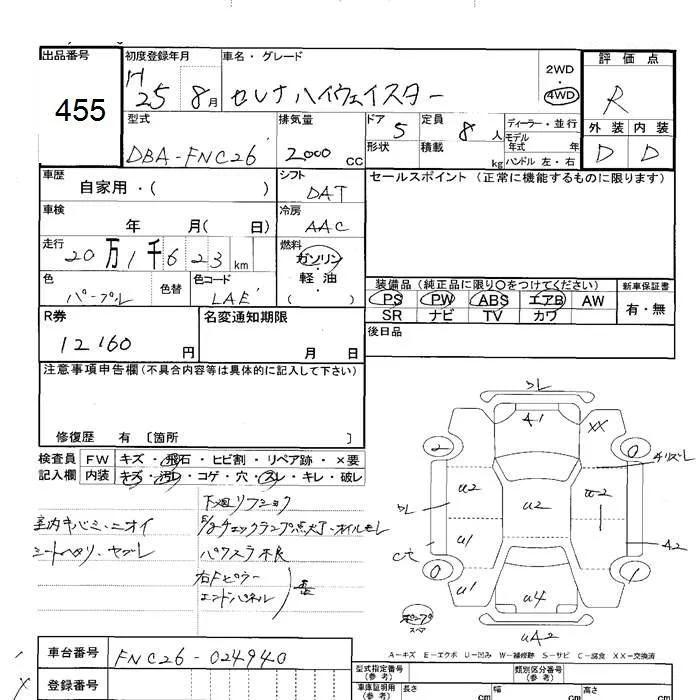 出品番号
455
初度登録年月
H25 8月
車名・グレード
セレナハイウェイスター
2WD
・
4WD
評価点
R
型式
DBA-FNC26
排気量
2000 cc
ドア 5
形状
定員 8人
積載 kg
ディーラー・並行
モデル年式 年
ハンドル 左・右
外装 内装
D D
車歴
自家用・( )
シフト
DAT
セールスポイント (正常に機能するものに限ります)
車検
年 月( 日)
冷房
AAC
走行
20万1千623km
燃料
ガソリン
・
軽・油
( )
色
パープル
色替
色コード
LAE
装備品(純正品に限り○をつけてください)
PS PW ABS エアB AW
SR ナビ TV カワ
新車保証書
有・無
R券
12160円
名変通知期限
月 日
後日品
注意事項申告欄(不具合内容等は具体的に記入して下さい)
修復歴 有 〔箇所 〕
検査員
記入欄
FW キズ・飛石・ヒビ割・リペア跡・×要
内装 キズ・汚レ・コゲ・穴・スレ・キレ・破レ
室内キバミ・ニオイ
シートヘタリ・ヤブレ
下廻リフショク
チェックランプ点灯・オイルモレ
パワスラ不良
右Fピラー
エンドパネル
歪
スレ
A1
XX
2
0
チリズレ
U2
U2
U2
スレ
U1
A2
0
1
U1
U4
スペア
UA2
A-キズ E-エクボ U-凹み W-補修跡 S-サビ C-腐食 XX-交換済
車台番号
FNC26-024940
登録番号
型式指定番号
(参考)
類別区分番号
(参考)
車庫証明用
(参考)
長さ cm
幅 cm
高さ cm